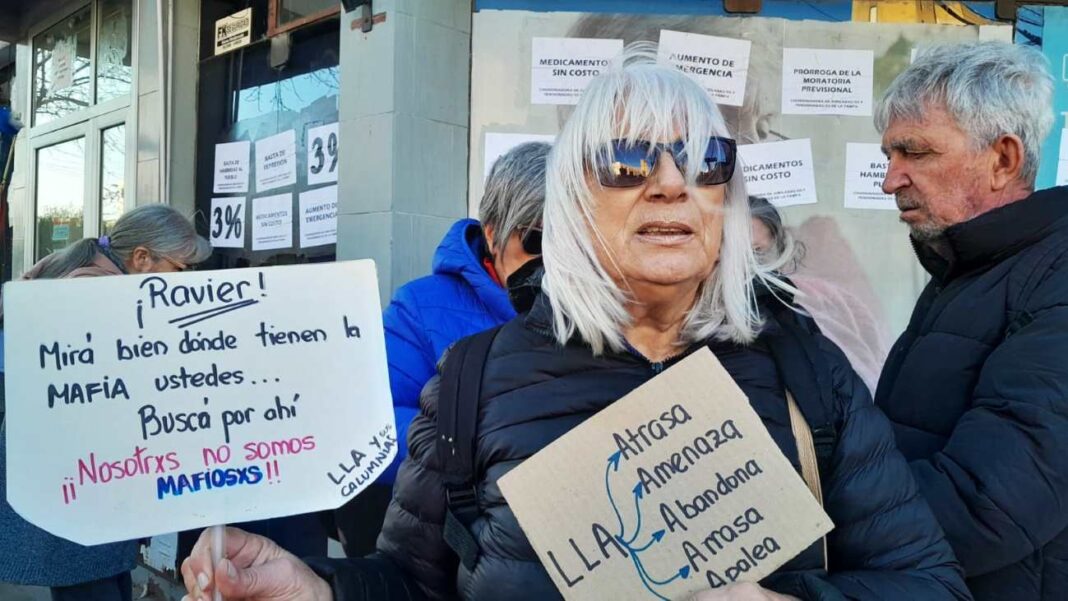 FK SEGURIDAD
MEDICAMENTOS
SIN COSTO
AUMENTO DE
EMERGENCIA
PRÓRROGA DE LA
MORATORIA
PREVISIONAL
BASTA DE
HAMBREAR AL
PUEBLO
BASTA DE
REPRESIÓN
3%
3%
MEDICAMENTOS
SIN COSTO
AUMENTO DE
EMERGENCIA
MEDICAMENTOS
SIN COSTO
BASTA
HAMB
PUE
¡Ravier!
Mirá bien dónde tienen la
MAFIA ustedes...
Buscá por ahí
¡¡Nosotrxs no somos
MAFIOSXS!!
LLA Y SUS
CALUMNIAS
LLA
Atrasa
Amenaza
Abandona
Arrasa
Apalea